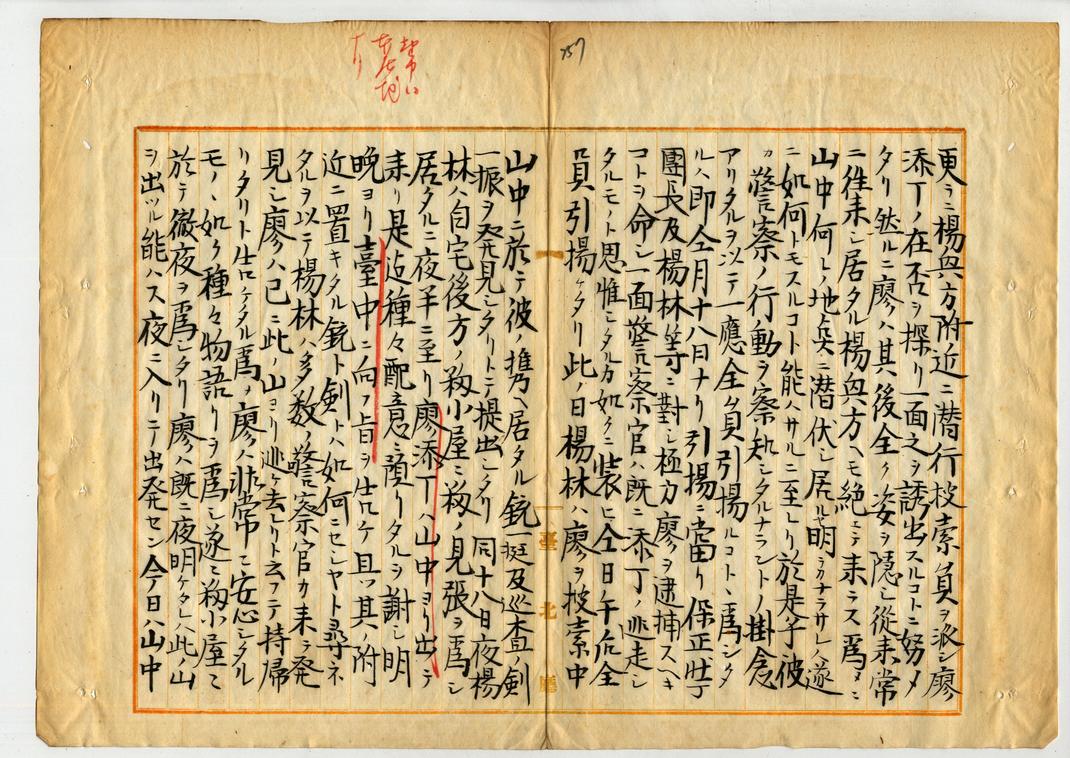 257
更ラニ楊與方附近ニ潜行捜索員ヲ派シ廖
添丁ノ在否ヲ探リ一面之ヲ誘出スルコトニ努メ
タリ然ルニ廖ハ其後全ク姿ヲ隠シ從来常
ニ往来シ居タル楊與方ヘモ絶ヘテ来ラス為メニ
山中何レノ地矣ニ潜伏シ居ルヤ明ラカナラサレハ遂
ニ如何トモスルコト能ハサルニ至レリ於是乎彼
カ警察ノ行動ヲ察知シタルナラントノ掛念
アリタルヲ以テ一應全員引揚ルコトヽ為シタ
ルハ即仝月十八日ナリ引揚ニ當リ保正壮丁
團長及楊林等ニ對シ極力廖ヲ逮捕スヘキ
コトヲ命シ一面警察官ハ既ニ添丁ノ逃走シ
タルモノト思惟シタルカ如クニ装ヒ仝日午后全
員引揚ケタリ此ノ日楊林ハ廖ヲ捜索中
臺北廳
山中ニ於テ彼ノ携ヘ居タル銃一挺及巡査ノ剣
一振ヲ発見シタリトテ提出シタリ同十八日夜楊
林ハ自宅後方ノ籾小屋ニ籾ノ見張ヲ為シ
居タルニ夜半ニ至リ廖添丁ハ山中ヨリ出テ
来リ是迠種々配意ニ預リタルヲ謝シ明
晩ヨリ臺中ニ向フ旨ヲ告ケ且ツ其ノ附
近ニ置キタル銃ト剣トハ如何ニセシヤト尋ネ
タルヲ以テ楊林ハ多数ノ警察官カ来ラ発
見シ廖ハ已ニ此ノ山ヨリ逃ケ去レリト云フテ持帰
リタリト告ケタル為メ廖ハ非常ニ安心シタル
モノヽ如ク種々物語リヲ為シ遂ニ籾小屋ニ
於テ徹夜ヲ為シタリ廖ハ既ニ夜明ケタレハ此ノ山
ヲ出ツル能ハス夜ニ入リテ出発セン今日ハ山中